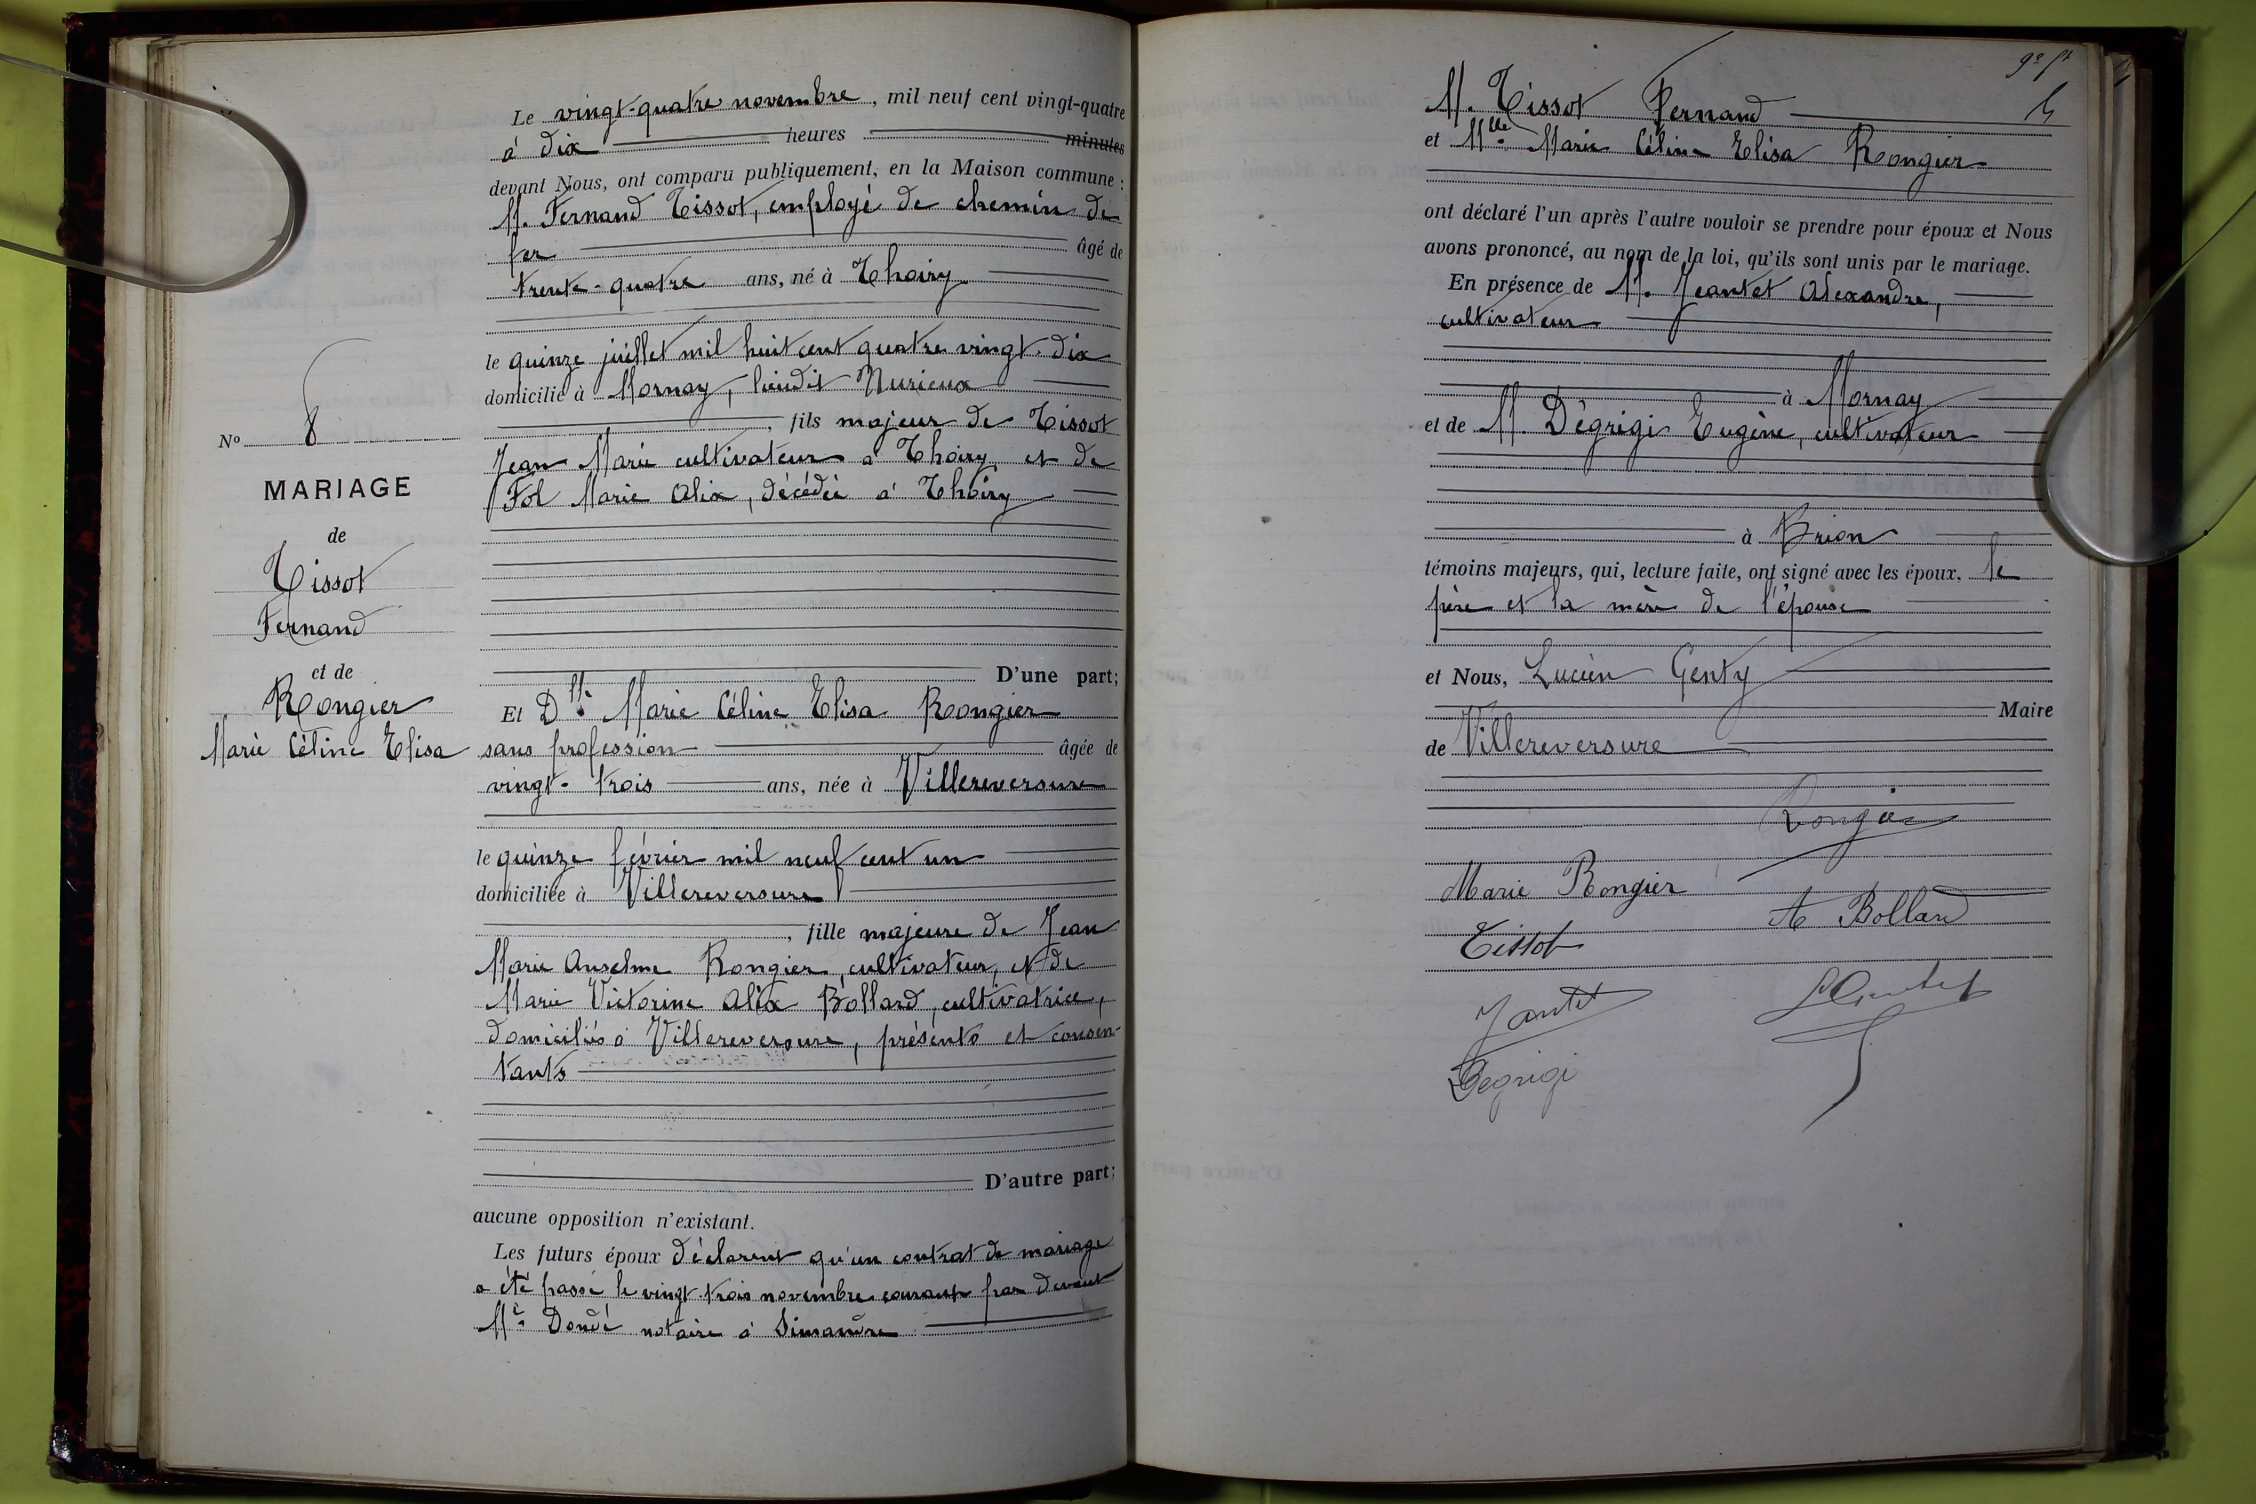 N° 8
MARIAGE
de
Tissot
Fernand
et de
Rongier
Marie Céline Elisa
Le vingt-quatre novembre, mil neuf cent vingt-quatre
à dix heures minutes
devant Nous, ont comparu publiquement, en la Maison commune :
M. Fernand Tissot, employé de chemin de
fer âgé de
trente-quatre ans, né à Thoiry
le quinze juillet mil huit cent quatre vingt-dix
domicilié à Mornay, lieudit Nurieux
, fils majeur de Tissot
Jean Marie cultivateur à Thoiry et de
Fol Marie Alix, décédée à Thoiry
D'une part;
Et Dlle Marie Céline Elisa Rongier
sans profession âgée de
vingt-trois ans, née à Villereversure
le quinze février mil neuf cent un
domiciliée à Villereversure
, fille majeure de Jean
Marie Anselme Rongier, cultivateur, et de
Marie Victorine Alix Bollard, cultivatrice,
domiciliés à Villereversure, présents et consen-
tants
D'autre part;
aucune opposition n'existant.
Les futurs époux déclarent qu'un contrat de mariage
a été passé le vingt-trois novembre courant par devant
Me Dondé notaire à Simandre
M. Tissot Fernand
et Mlle Marie Céline Elisa Rongier
ont déclaré l'un après l'autre vouloir se prendre pour époux et Nous
avons prononcé, au nom de la loi, qu'ils sont unis par le mariage.
En présence de M. Jeantet Alexandre,
cultivateur
à Mornay
et de M. Dégrigi Eugène, cultivateur
à Brion
témoins majeurs, qui, lecture faite, ont signé avec les époux, le
père et la mère de l'épouse
et Nous, Lucien Genty
Maire
de Villereversure
Rongier
Marie Rongier
A Bollard
Tissot
Jantet
Degrigi